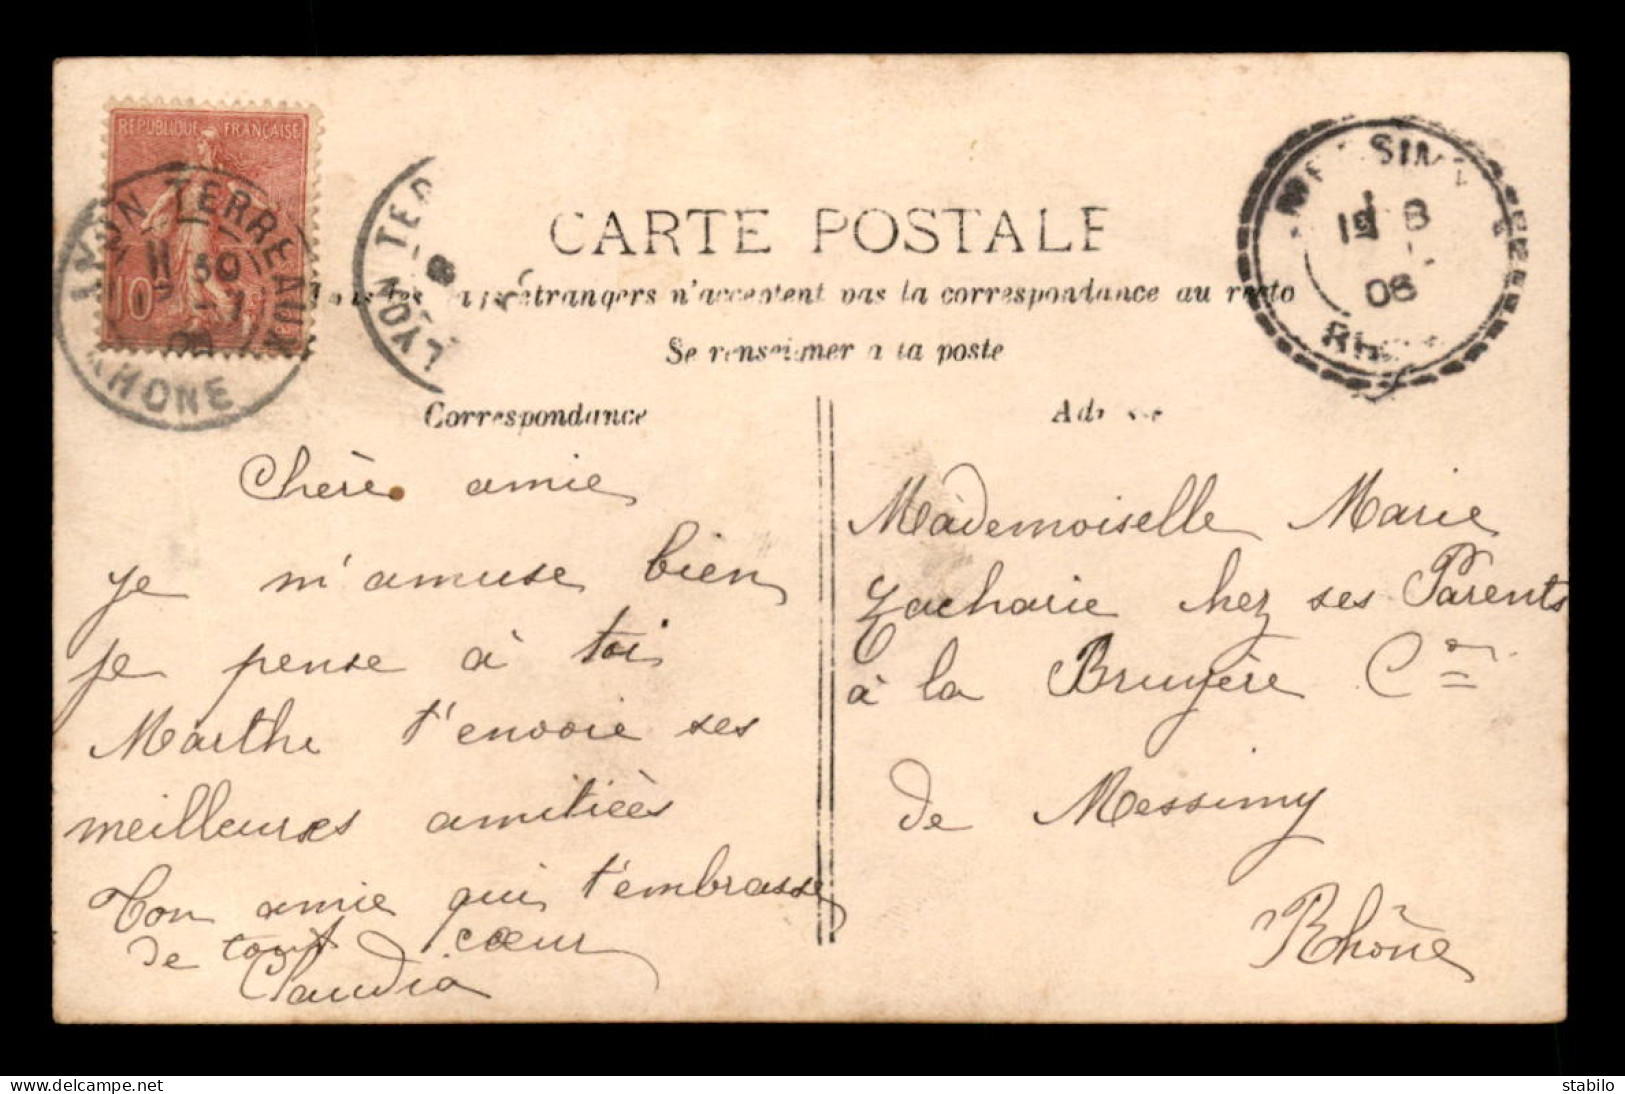 REPUBLIQUE FRANÇAISE
10
LYON TERREAUX
11 30
RHONE
LYON TER
SIM
19 8
08
CARTE POSTALE
étrangers n'acceptent pas la correspondance au recto
Se renseigner a la poste
Correspondance
Adresse
Chère amie
je m'amuse bien
je pense à toi
Marthe t'envoie ses
meilleures amitiées
Ton amie qui t'embrasse
de tout cœur
Claudia
Mademoiselle Marie
Zacharie chez ses Parents
à la Bruyère Cne
de Messimy
Rhône
delcampe.net
stabilo